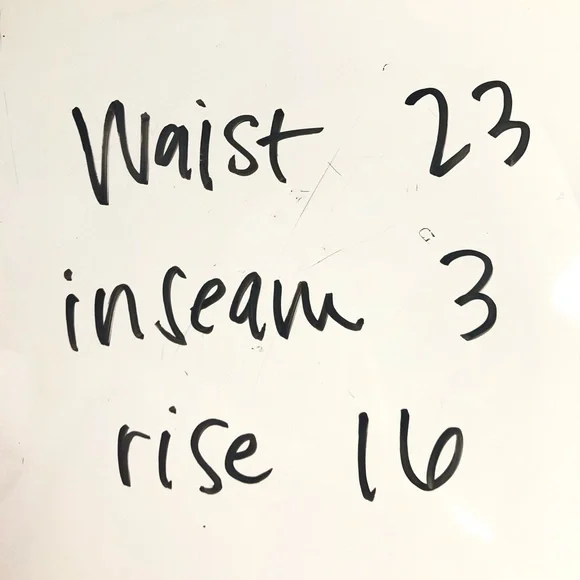 Waist 23
inseam 3
rise 16